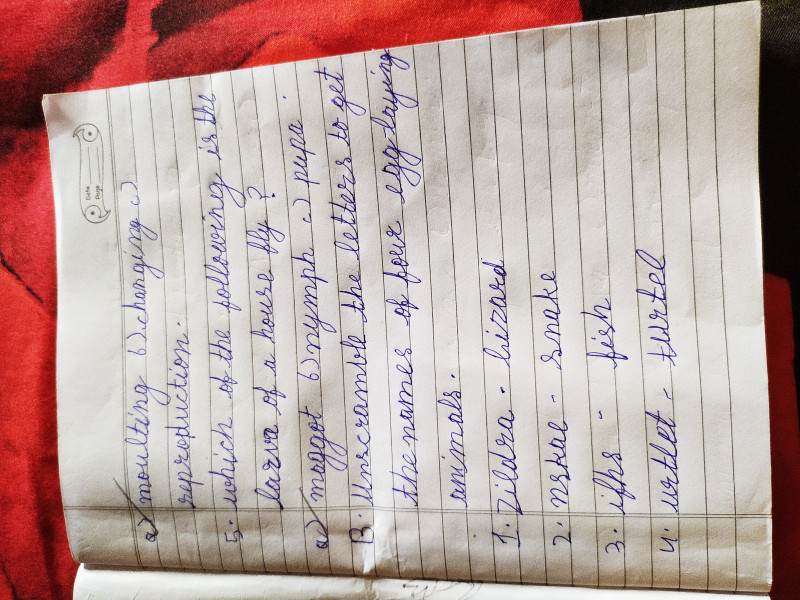 Date
Page
a) moulting b) changing c)
reproduction.
5. which of the following is the
larva of a house fly?
a) maggot b) nymph c) pupa.
B. Unscramble the letters to get
the names of four egg laying
animals.
1. Zildra - lizard
2. nskae - snake
3. ifhs - fish
4. urtlet - turtel